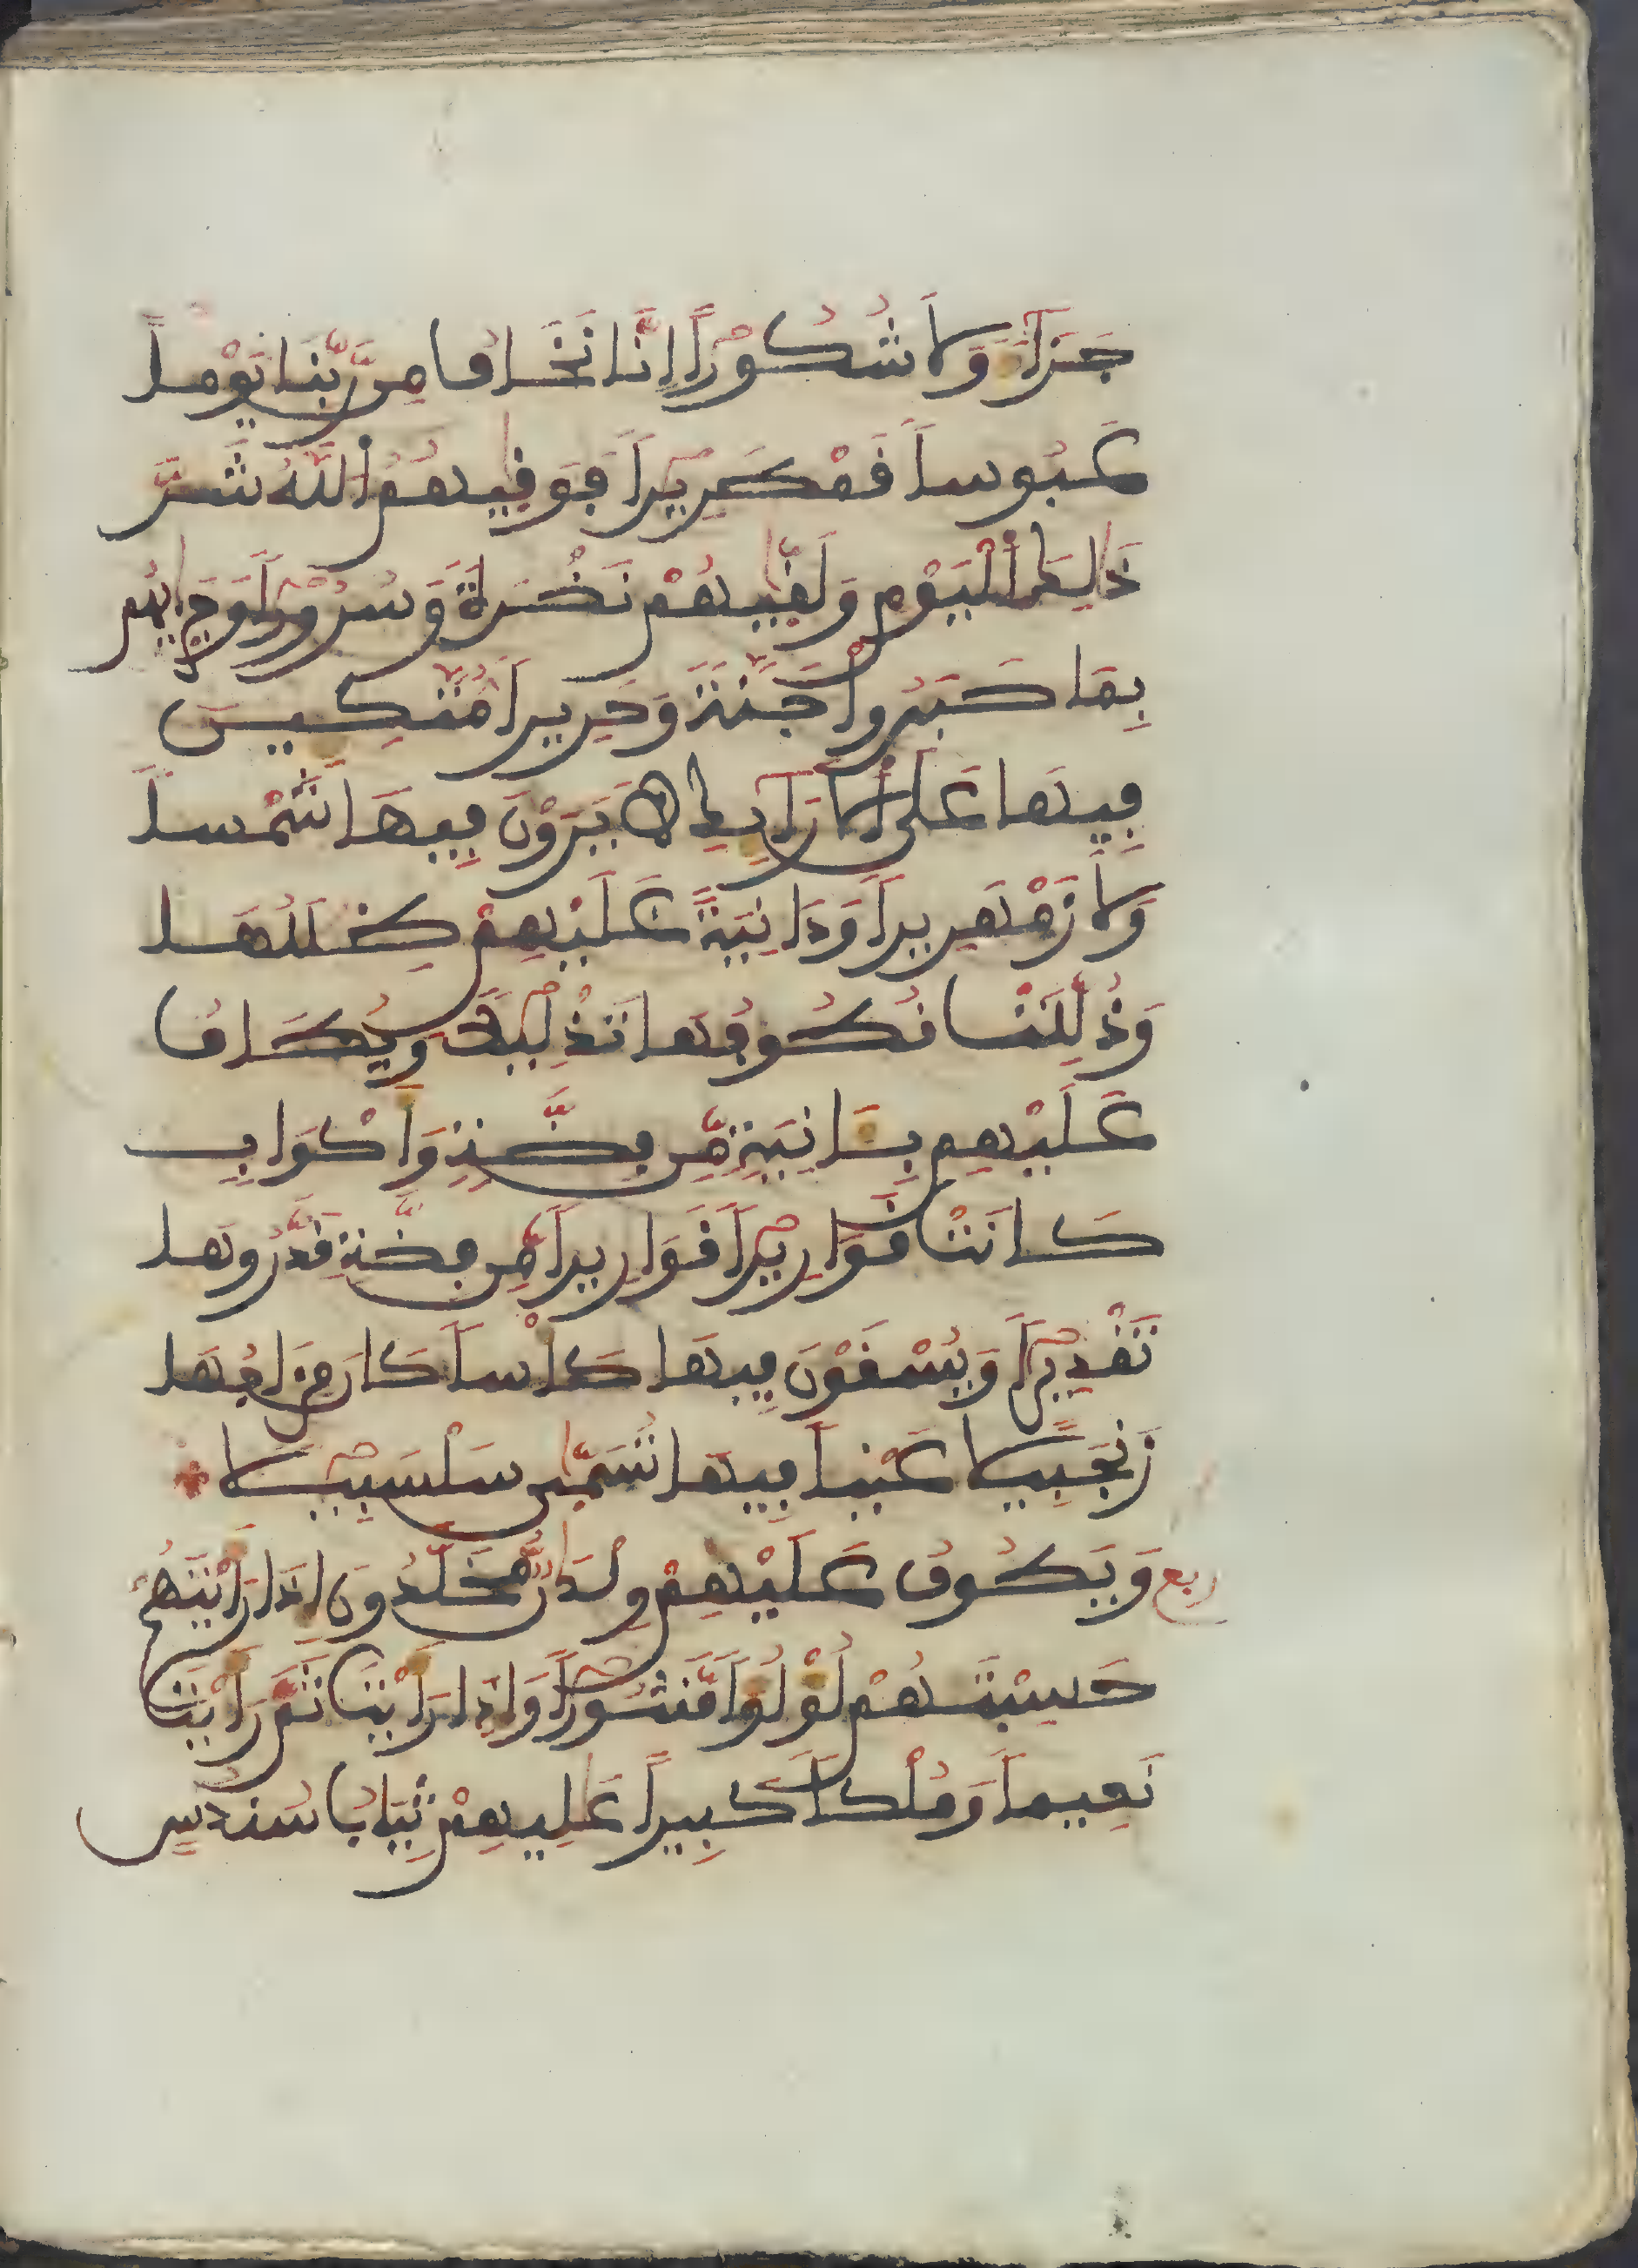 جَزَآءً وَلَا شُكُوراً اِنَّا نَخَافُ مِن رَّبِّنَا يَوْماً
عَبُوساً قَمْطَرِيراً فَوَقٰيهُمُ اللَّهُ شَرَّ
ذَٰلِكَ اَلْيَوْمِ وَلَقّٰيهُمْ نَضْرَةً وَسُرُوراً وَجَزٰيهُم
بِمَا صَبَرُواْ جَنَّةً وَحَرِيراً مُّتَّكِـِٔينَ
فِيهَا عَلَى اَلَارَآئِكِ لَا يَرَوْنَ فِيهَا شَمْساً
وَلَا زَمْهَرِيراً وَدَانِيَةً عَلَيْهِمْ ظِلَٰلُهَا
وَذُلِّلَتْ قُطُوفُهَا تَذْلِيلًا وَيُطَافُ
عَلَيْهِم بِـَٔانِيَةٍ مِّن فِضَّةٍ وَأَكْوَابٍ
كَانَتْ قَوَارِيراً قَوَارِيراً مِّن فِضَّةٍ قَدَّرُوهَا
تَقْدِيراً وَيُسْقَوْنَ فِيهَا كَأْساً كَانَ مِزَاجُهَا
زَنجَبِيلًا عَيْناً فِيهَا تُسَمّٰى سَلْسَبِيلًا
ربع وَيَطُوفُ عَلَيْهِمْ وِلْدَٰنٌ مُّخَلَّدُونَ إِذَا رَأَيْتَهُمْ
حَسِبْتَهُمْ لُؤْلُؤاً مَّنثُوراً وَإِذَا رَأَيْتَ ثَمَّ رَأَيْتَ
نَعِيماً وَمُلْكاً كَبِيراً عَٰلِيهِمْ ثِيَابُ سُندُسٍ